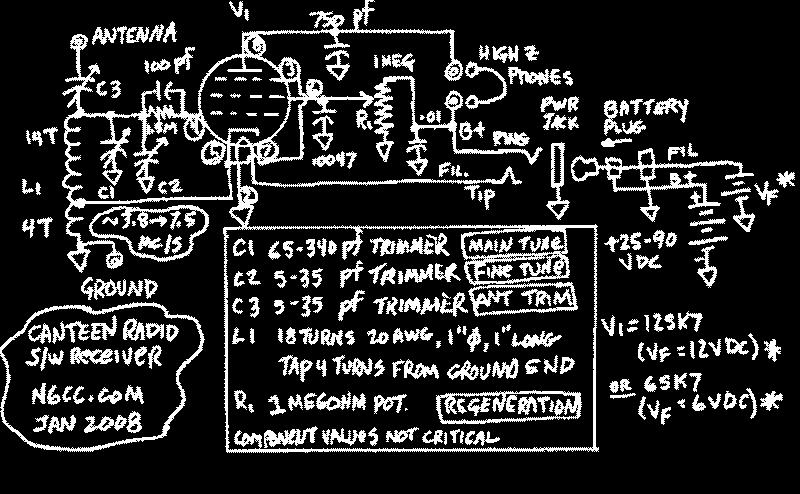 V1
750 pf
ANTENNA
HIGH Z
PHONES
100 pf
1 MEG
C3
PWR
JACK
BATTERY
PLUG
14T
R1
.01
B+
RING
FIL
.0047
FIL.
TIP
B+
VF*
L1
C1
C2
4T
~3.8→7.5
MC/S
+25-90
VDC
GROUND
C1 65-340 pf TRIMMER MAIN TUNE
C2 5-35 pf TRIMMER FINE TUNE
C3 5-35 pf TRIMMER ANT TRIM
L1 18 TURNS 20 AWG, 1"ϕ, 1" LONG
TAP 4 TURNS FROM GROUND END
R1 1 MEGOHM POT. REGENERATION
COMPONENT VALUES NOT CRITICAL
CANTEEN RADIO
S/W RECEIVER
N6CC.COM
JAN 2008
V1=12SK7
(VF=12VDC)*
OR 6SK7
(VF=6VDC)*